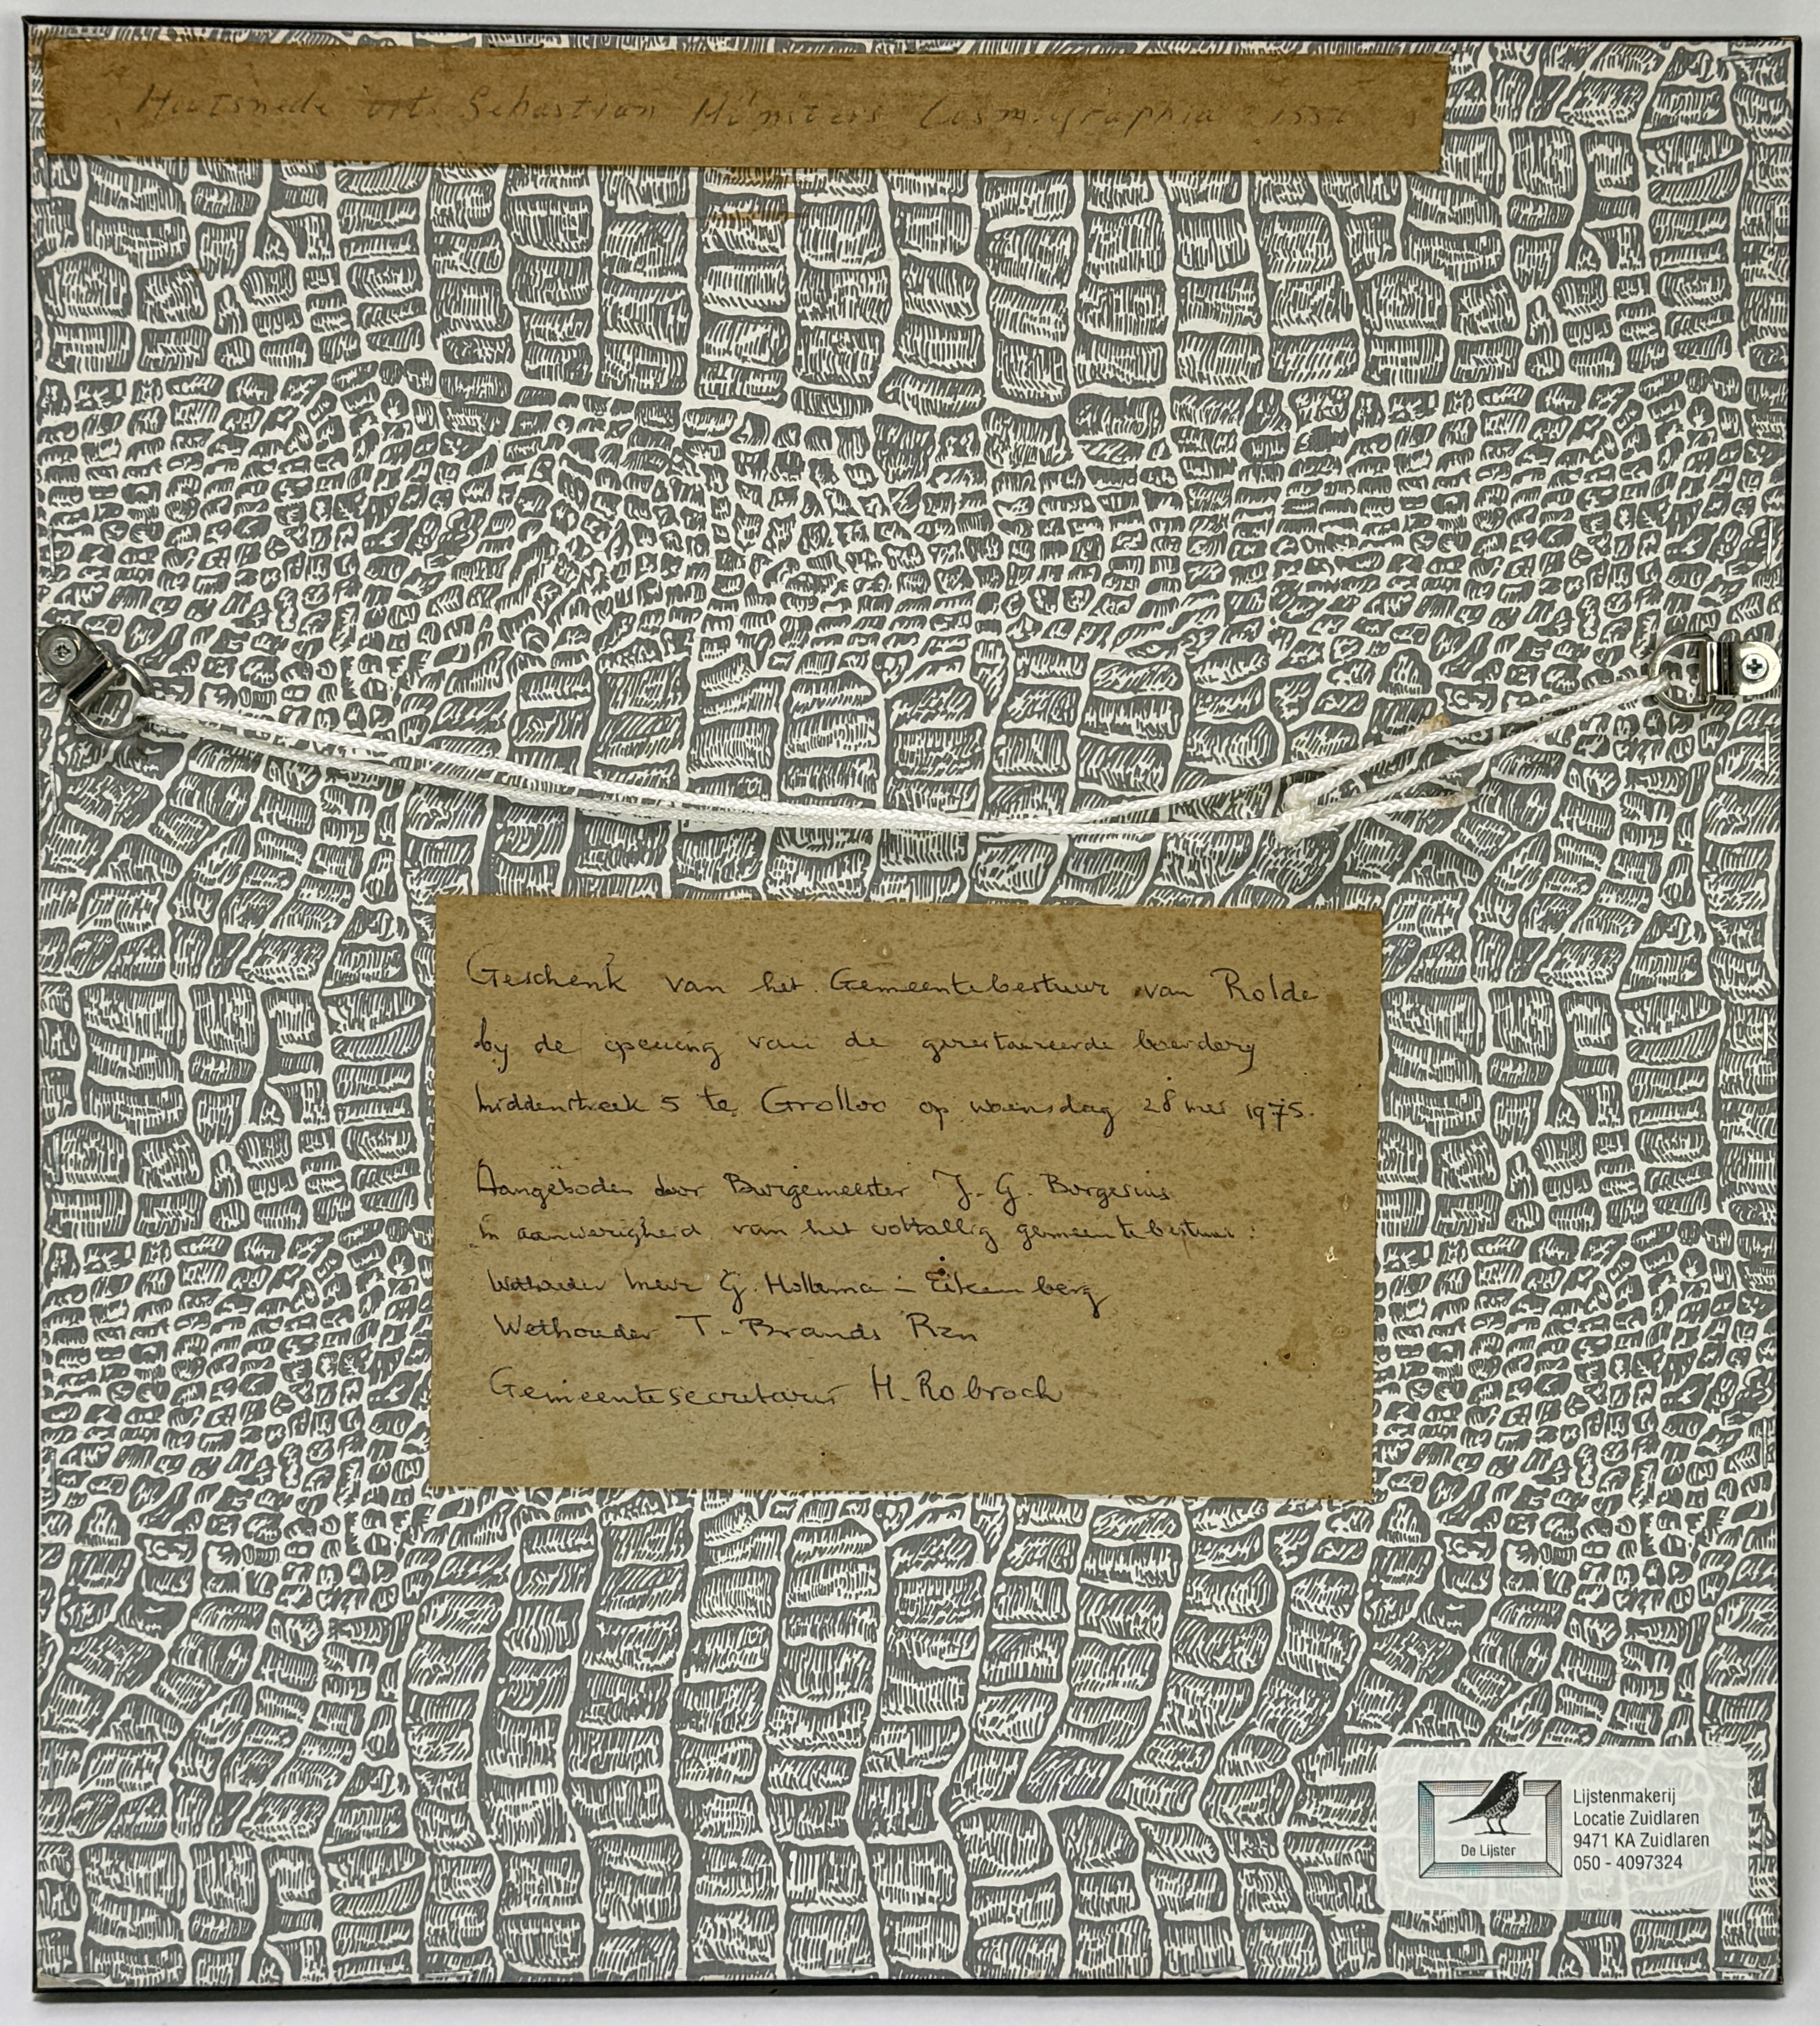 Houtsnede uit Sebastian Münsters Cosmographia
Geschenk van het Gemeentebestuur van Rolde
by de opening van de gerestaureerde boerdery
Middenstreek 5 te Grolloo op woensdag 28 mei 1975.
Aangeboden door Burgemeester J. G. Borgesius
in aanwezigheid van het voltallig gemeentebestuur:
Wethouder Mevr G. Hollema - Eikenberg
Wethouder T. Brands Rzn
Gemeentesecretaris H. Robroch
De Lijster
Lijstenmakerij
Locatie Zuidlaren
9471 KA Zuidlaren
050 - 4097324